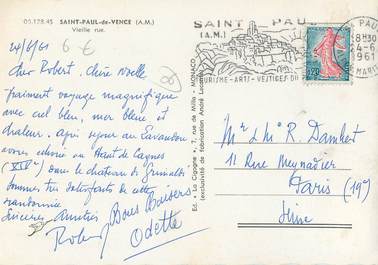 09.128.45 SAINT-PAUL-de-VENCE (A.M.)
Vieille rue.
6 €
24/6/61
Cher Robert. Chère Noelle
Vraiment voyage magnifique
avec ciel bleu, mer bleue et
chaleur. Après séjour au Lavandou
avons échoué au Haut de Cagnes
(XIVe) dans le château de Grimaldi
Sommes très satisfaits de cette
randonnée
Sincères Amitiés Bons Baisers
Robert Odette
Ed. « La Cigogne », 7, rue de Millo - MONACO
(exclusivité de fabrication André Leconte)
SAINT PAUL
(A.M.)
TOURISME-ARTS-VESTIGES DU
PAUL
8H30
4-6
1961
MAR
0,20
Mr & Me R. Dambert
11 Rue Meynadier
Paris (19e)
Seine